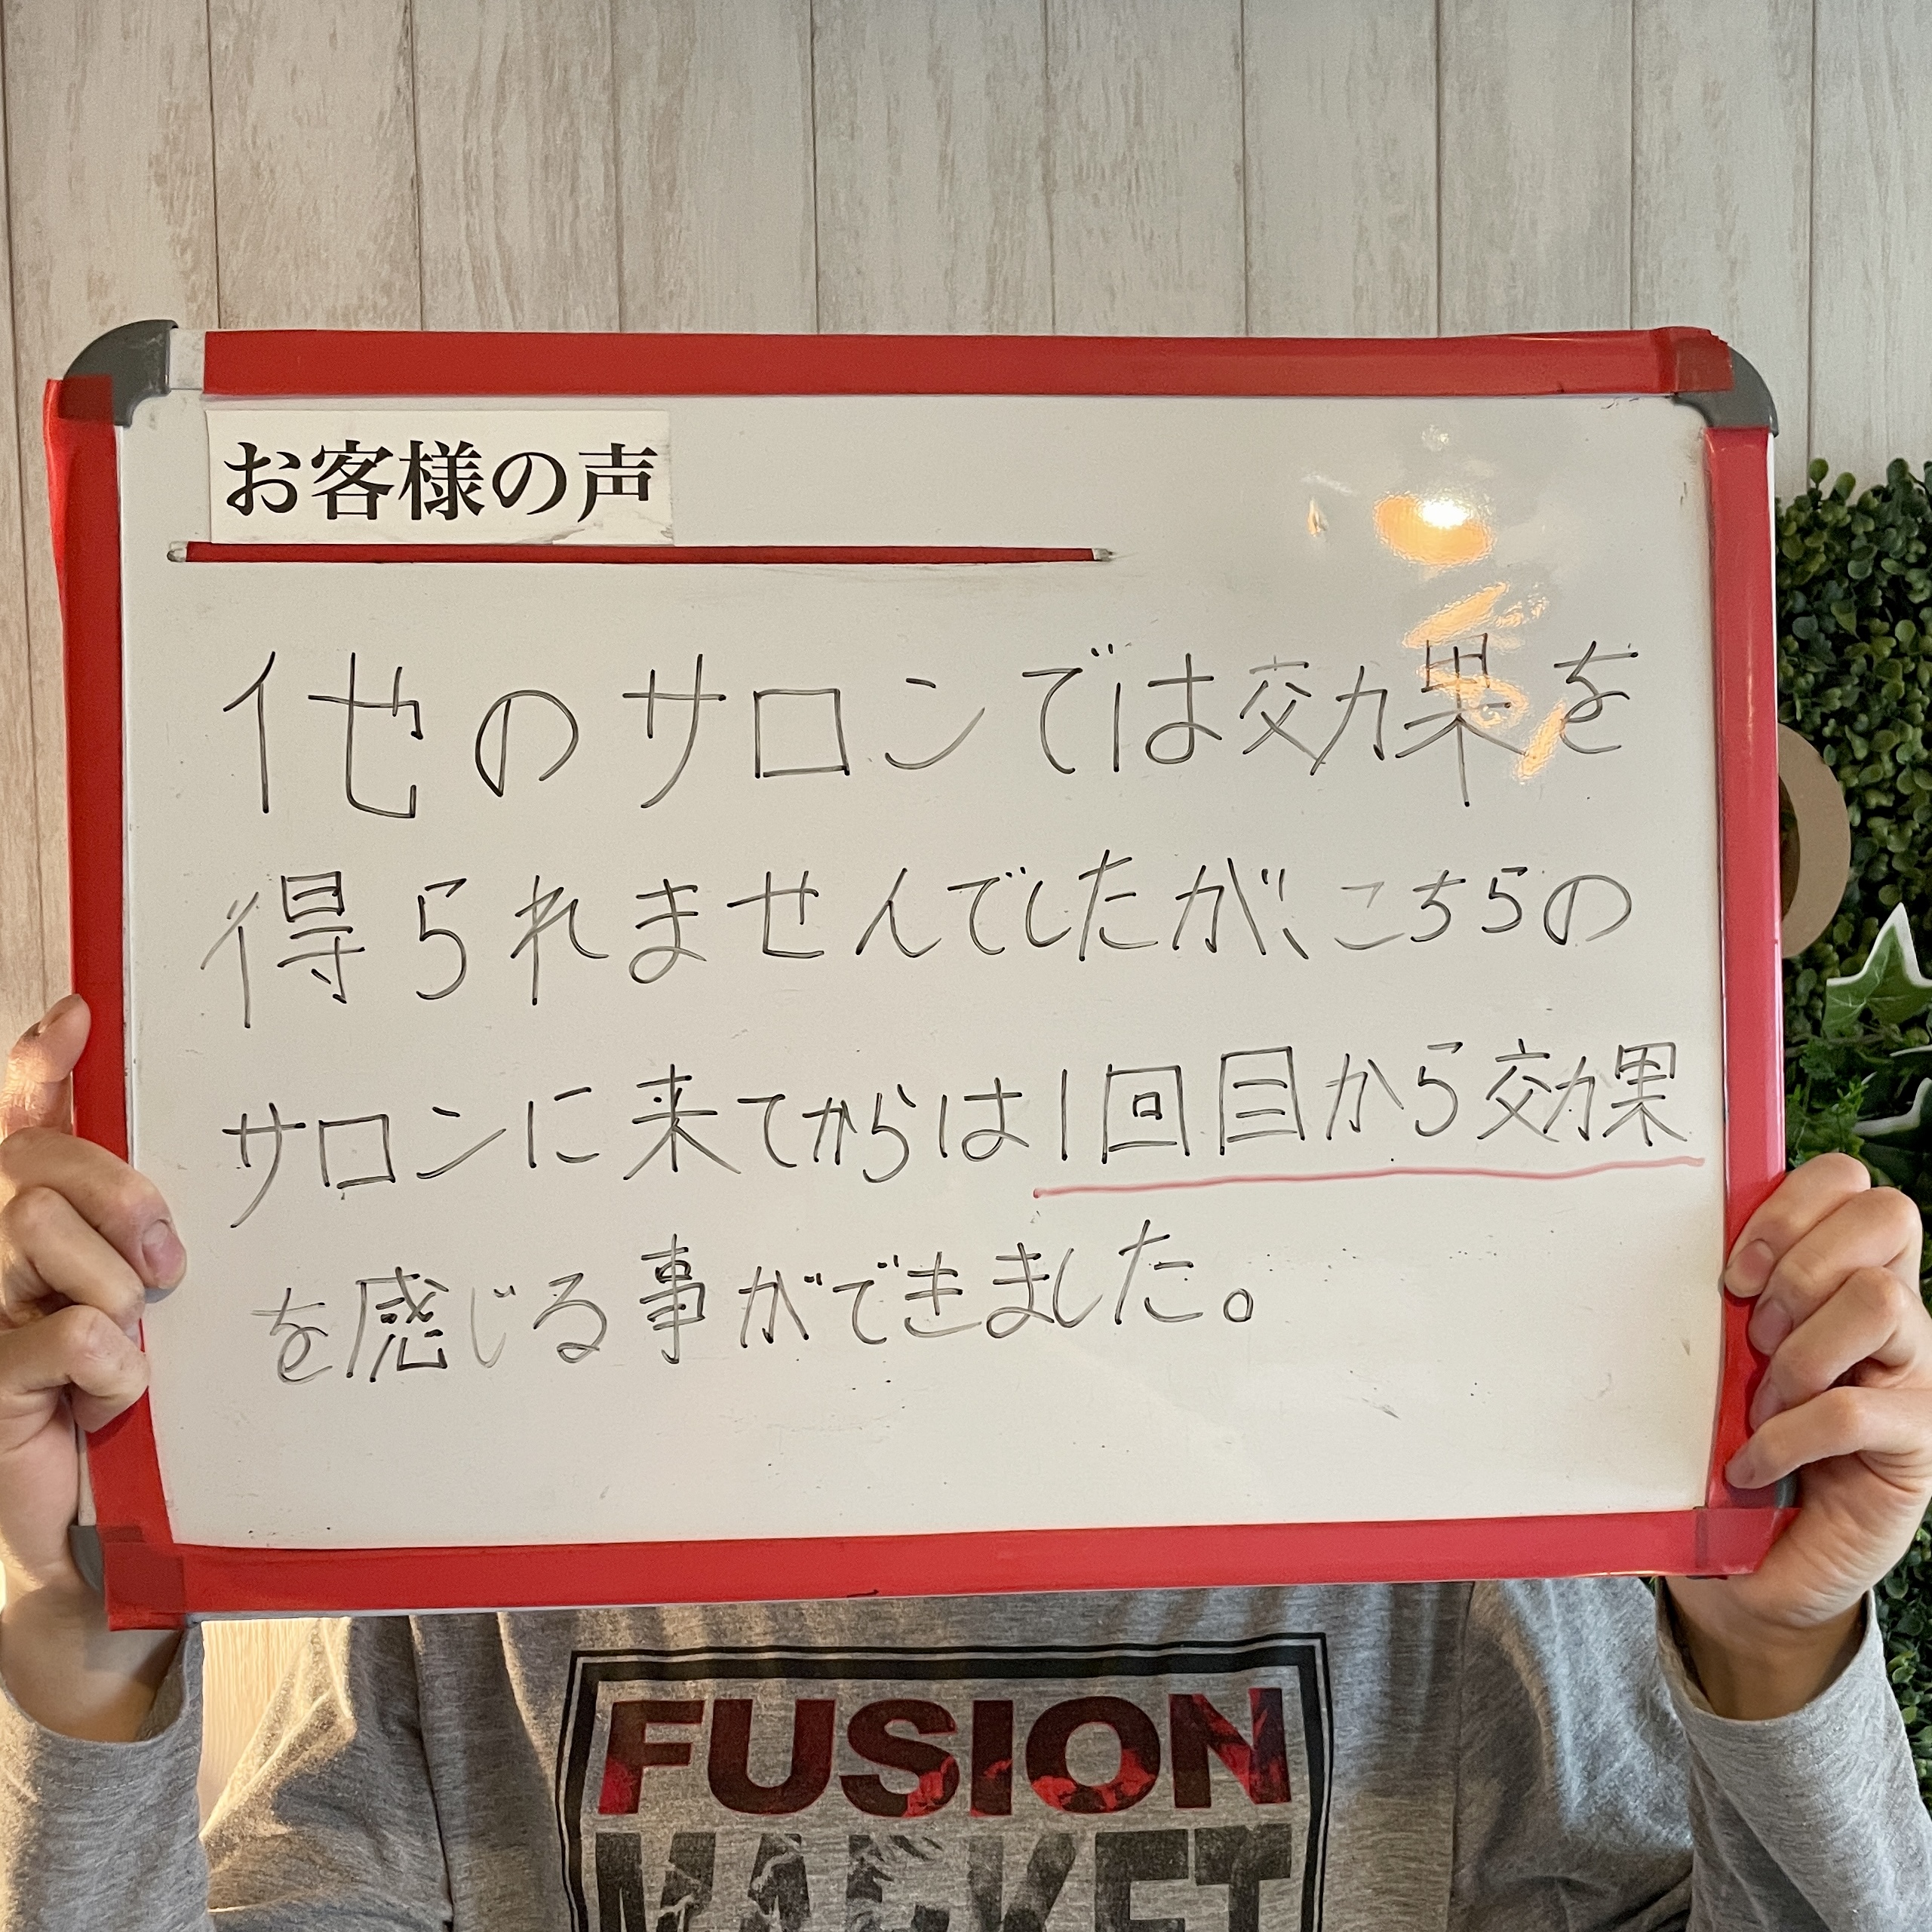 お客様の声
他のサロンでは効果を
得られませんでしたが、こちらの
サロンに来てからは1回目から効果
を感じる事ができました。
FUSION
MARKET